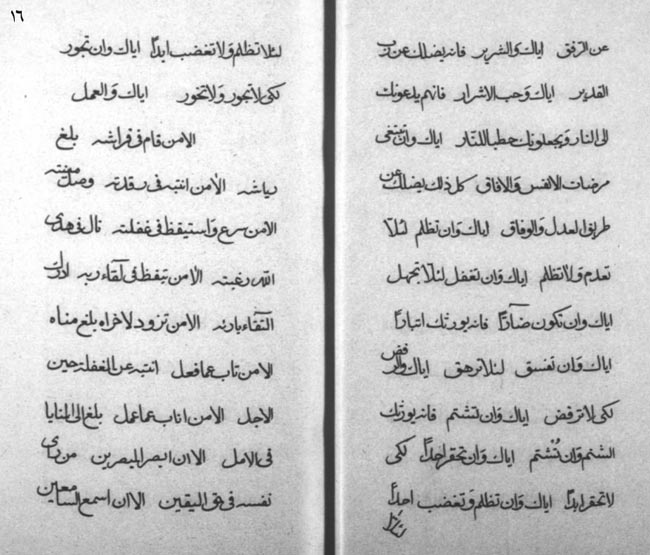 عن الرفق اياك والشرير فانه يضلك عن رب
القدير اياك وحب الاشرار فانهم يدعونك
الى النار ويجعلونك حطبا للنار اياك وان تبتغى
مرضات الانفس والافاق كل ذلك يضلك عن
طريق العدل والوفاق اياك وان تظلم لئلا
تعدم ولا تظلم اياك وان تغفل لئلا تجهل
اياك وان تكون ضارا فانه يورثك
اياك وان تفسق لئلا ترهق اياك والرفض
لكى لا ترفض اياك وان تشتم فانه يورثك
الشتم وان تُشتم اياك وان تحقر احداً لكى
لا تحقر ابداً اياك وان تظلم وتغضب احداً
لئلا
١٦
لئلا تظلم ولا تغضب ابداً اياك وان تجور
لكى لا تجور ولا تخور اياك والعمل
الا من قام فى فراشه بلغ
رياشه الا من انتبه فى رقدته وصل
الا من سرع واستيقظ فى غفلته نال فى هدى
الله رغبته الا من تيقظ فى لقاء ربه ادرك
اللقاء بارئه الا من تزود لاخراه بلغ مناه
الا من تاب عما فعل انتبه عن الغفلة حين
الاجل الا من اناب عما عمل بلغ الى المنايا
فى الامل الا ان ابصر المبصرين من راى
نفسه فى حق اليقين الا ان اسمع السامعين